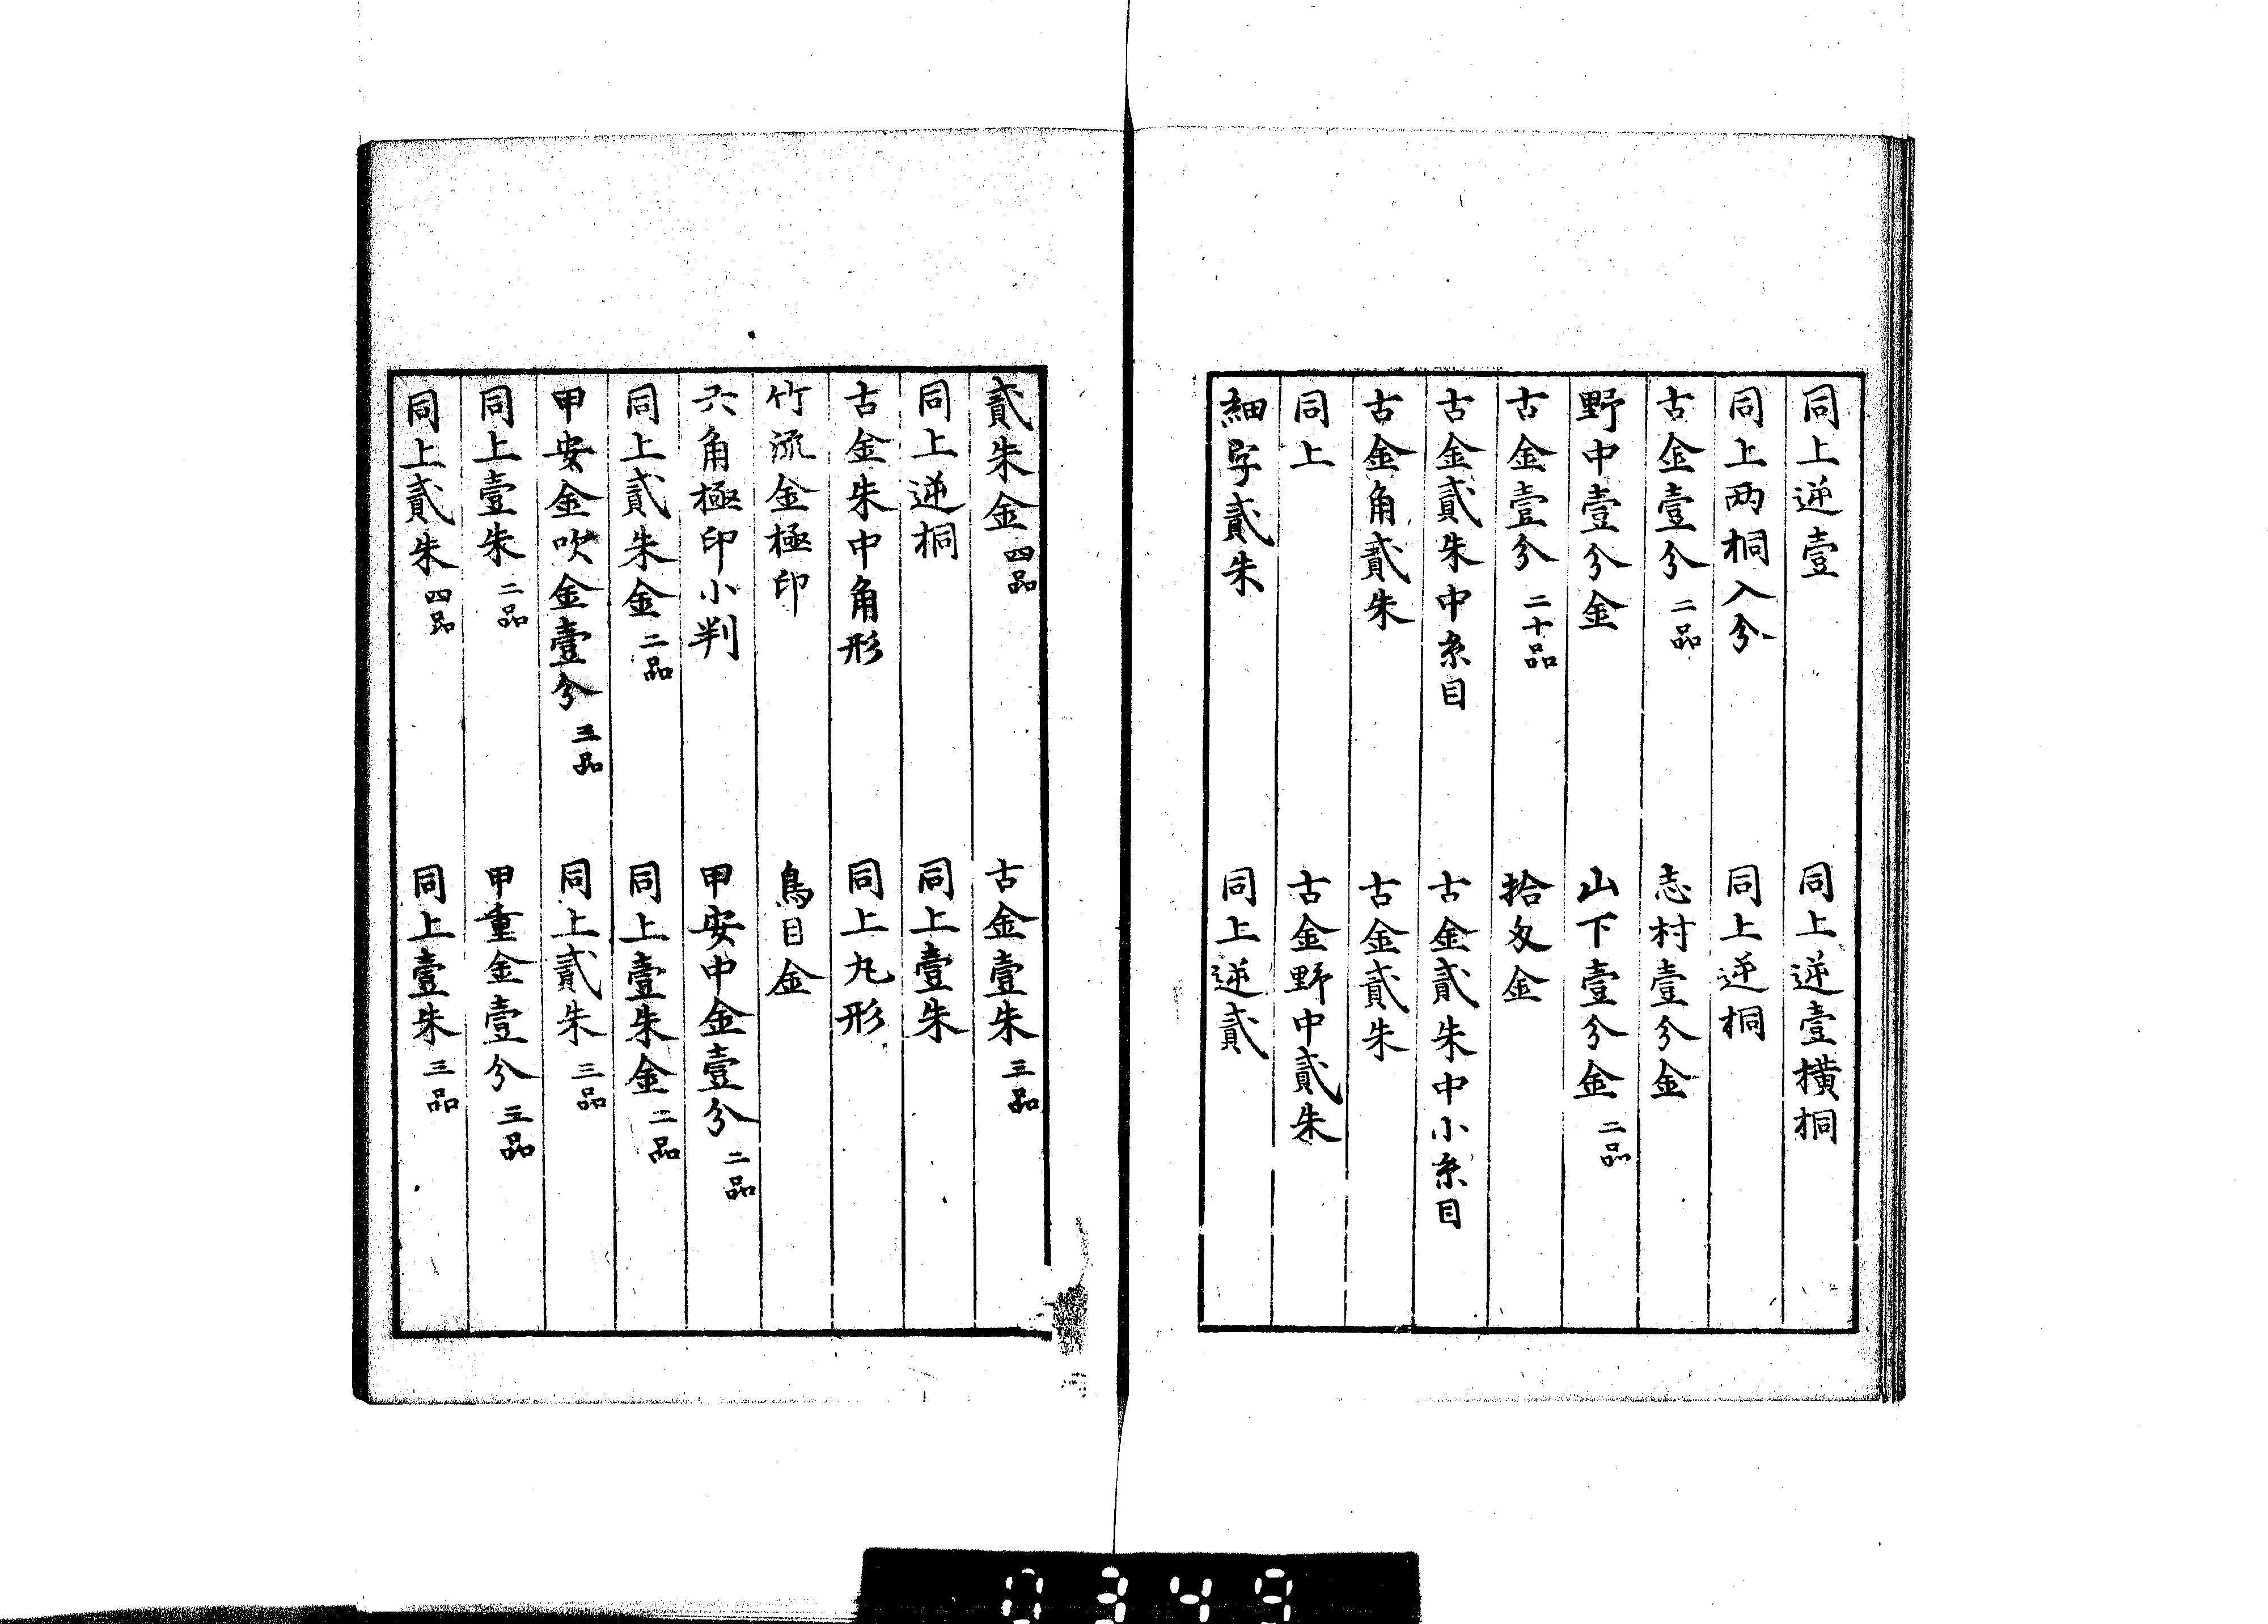 同上逆壹　同上逆壹横桐
同上两桐入分　同上逆桐
古金壹分 二品　志村壹分金
野中壹分金　山下壹分金 二品
古金壹分 二十品　拾匁金
古金貳朱中糸目　古金貳朱中小糸目
古金角貳朱　古金貳朱
同上　古金野中貳朱
細字貳朱　同上逆貳
貳朱金 四品　古金壹朱 三品
同上逆桐　同上壹朱
古金朱中角形　同上丸形
竹流金極印　鳥目金
六角極印小判　甲安中金壹分 二品
同上貳朱金 二品　同上壹朱金 二品
甲安金吹金壹分 三品　同上貳朱 三品
同上壹朱 二品　甲重金壹分 三品
同上貳朱 四品　同上壹朱 三品
0349